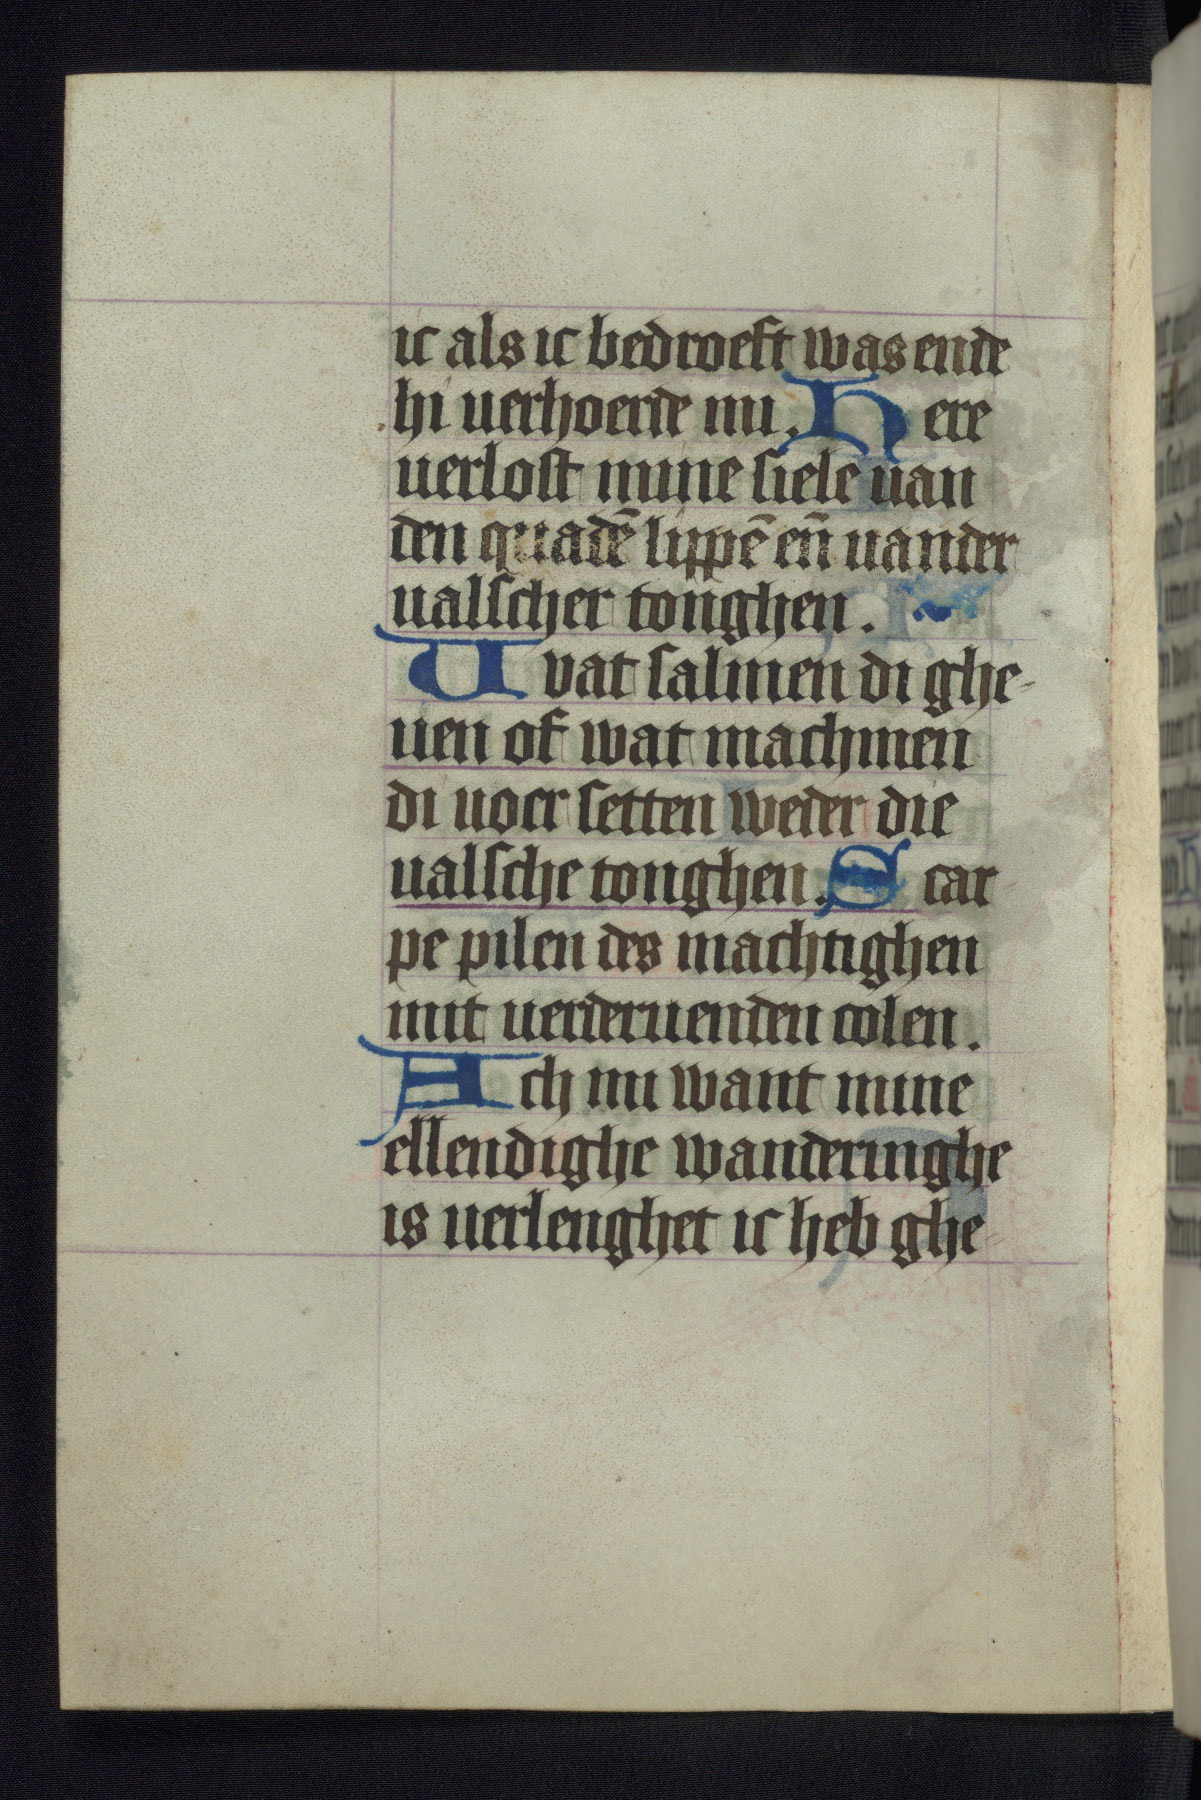 ic als ic bedroeft was ende
hi uerhoerde mi. Here
uerlost mine siele uan
den quadē lippē en̄ uander
ualscher tonghen.
Uvat salmen di ghe-
uen of wat machmen
di uoer setten weder die
ualsche tonghen. Scar-
pe pilen des machtighen
mit uerderuenden colen.
Ach mi want mine
ellendighe wanderinghe
is uerlenghet ic heb ghe-